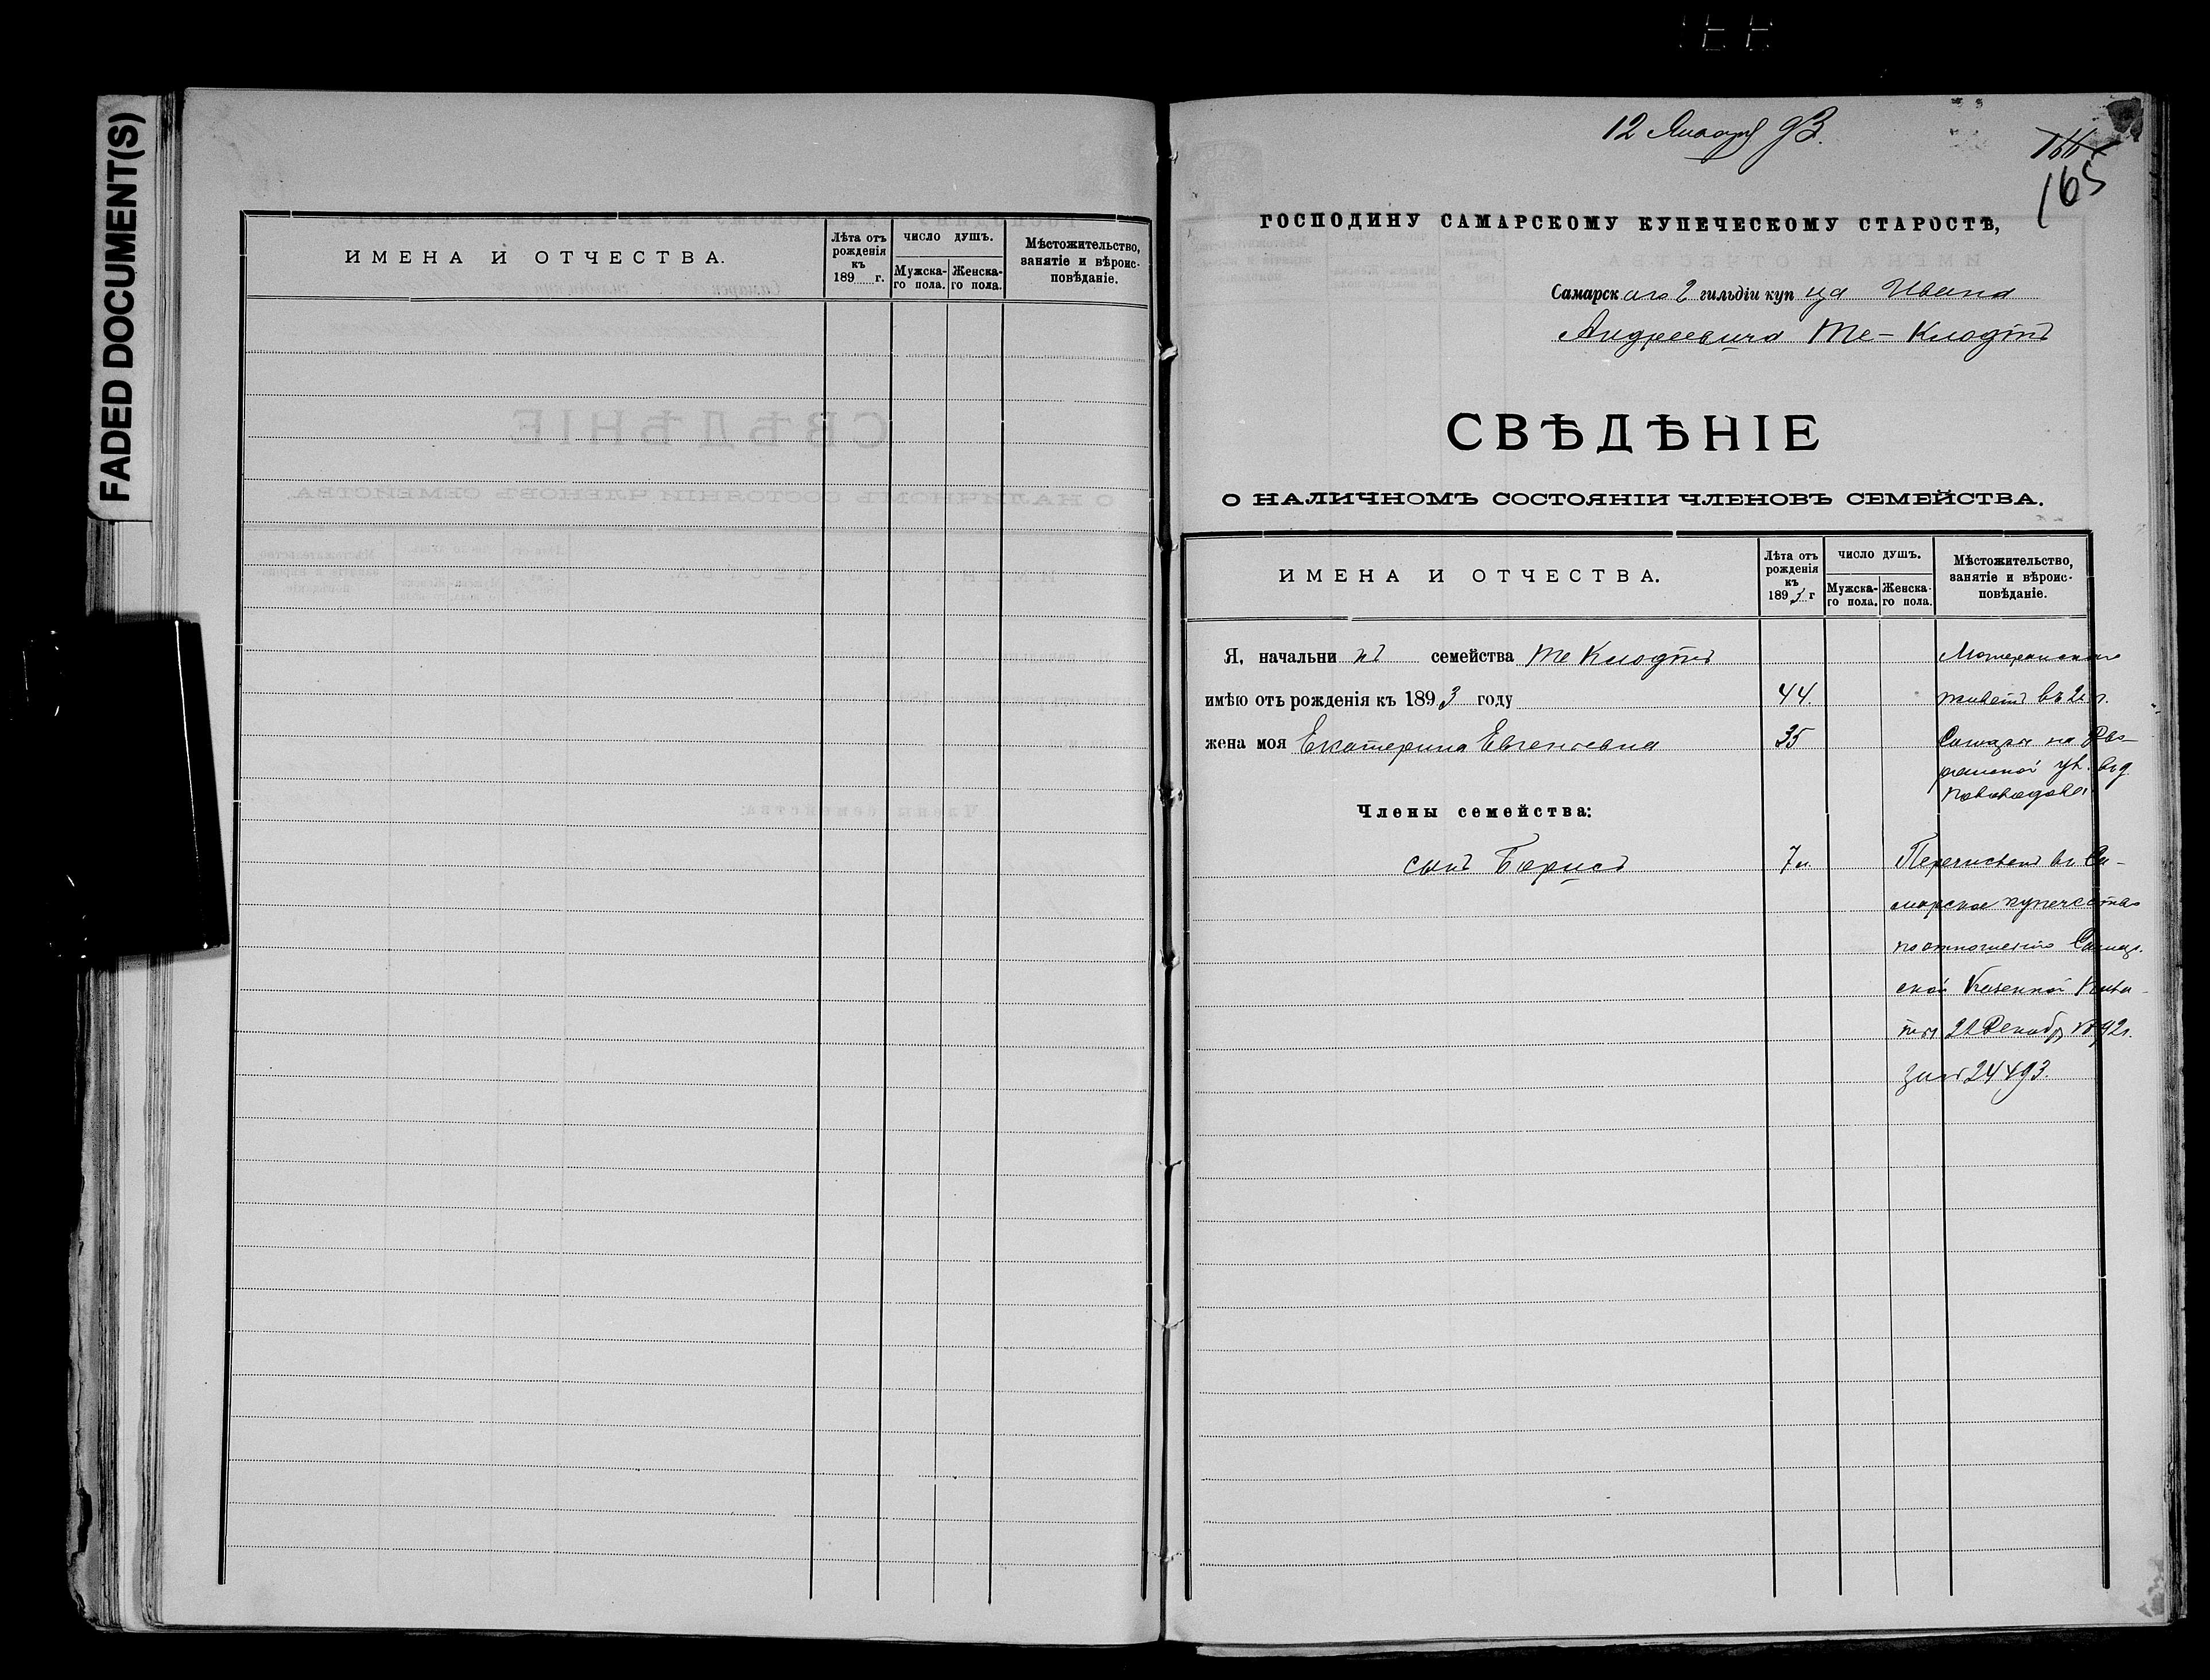 FADED DOCUMENT(S)
ИМЕНА И ОТЧЕСТВА.
Лѣта отъ рожденія къ 189 г.
ЧИСЛО ДУШЪ.
Мужска-го пола.
Женска-го пола.
Мѣстожительство, занятіе и вѣроис-повѣданіе.
12 Января 93.
165
ГОСПОДИНУ САМАРСКОМУ КУПЕЧЕСКОМУ СТАРОСТѢ,
Самарскаго 2 гильдіи купца Ивана
Андреевича Те-Клодтъ
СВѢДѢНІЕ
О НАЛИЧНОМЪ СОСТОЯНІИ ЧЛЕНОВЪ СЕМЕЙСТВА.
ИМЕНА И ОТЧЕСТВА.
Лѣта отъ рожденія къ 1893 г
ЧИСЛО ДУШЪ.
Мужска-го пола.
Женска-го пола.
Мѣстожительство, занятіе и вѣроис-повѣданіе.
Я, начальникъ семейства Те Клодтъ Лютеранскаго
имѣю отъ рожденія къ 1893 году 44. живетъ въ г.
жена моя Екатерина Евгеньевна 35 Самарѣ на Дво-
рянской ул. въ д.
Члены семейства:
сынъ Борисъ 7 л. Перечисленъ въ Са-
марское купечество
по отношенію Самар.
ской Казенной Пала-
ты 22 Декабр 1892 г.
за № 24493.